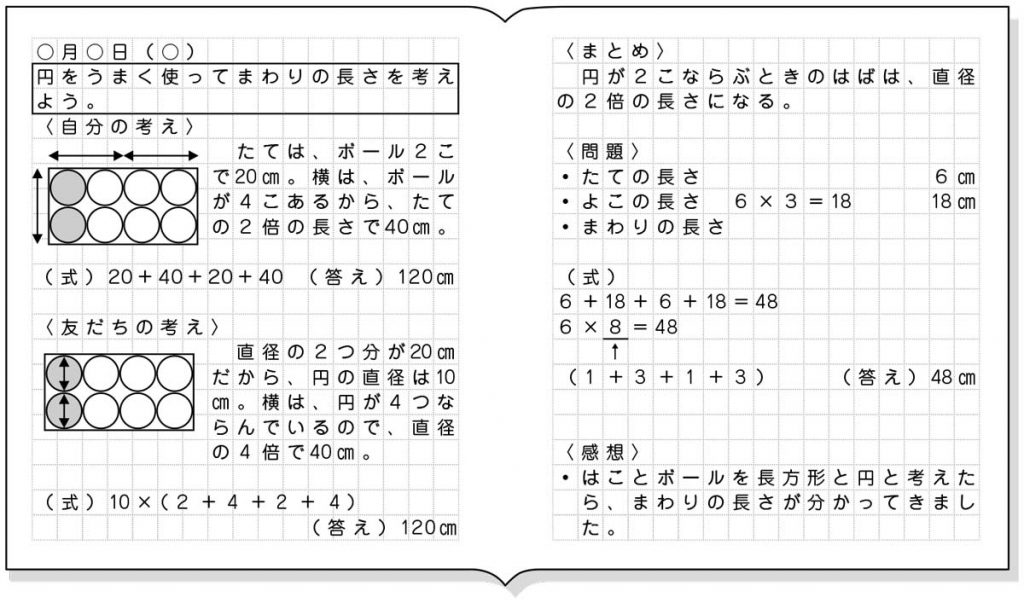 ○月○日(○)
円をうまく使ってまわりの長さを考え
よう。
〈自分の考え〉
たては、ボール2こ
で20㎝。横は、ボール
が4こあるから、たて
の2倍の長さで40㎝。
(式)20+40+20+40 (答え)120㎝
〈友だちの考え〉
直径の2つ分が20㎝
だから、円の直径は10
㎝。横は、円が4つな
らんでいるので、直径
の4倍で40㎝。
(式)10×(2+4+2+4)
(答え)120㎝
〈まとめ〉
円が2こならぶときのはばは、直径
の2倍の長さになる。
〈問題〉
・たての長さ 6㎝
・よこの長さ 6×3=18 18㎝
・まわりの長さ
(式)
6+18+6+18=48
6×8=48
↑
(1+3+1+3) (答え)48㎝
〈感想〉
・はことボールを長方形と円と考えた
ら、まわりの長さが分かってきまし
た。